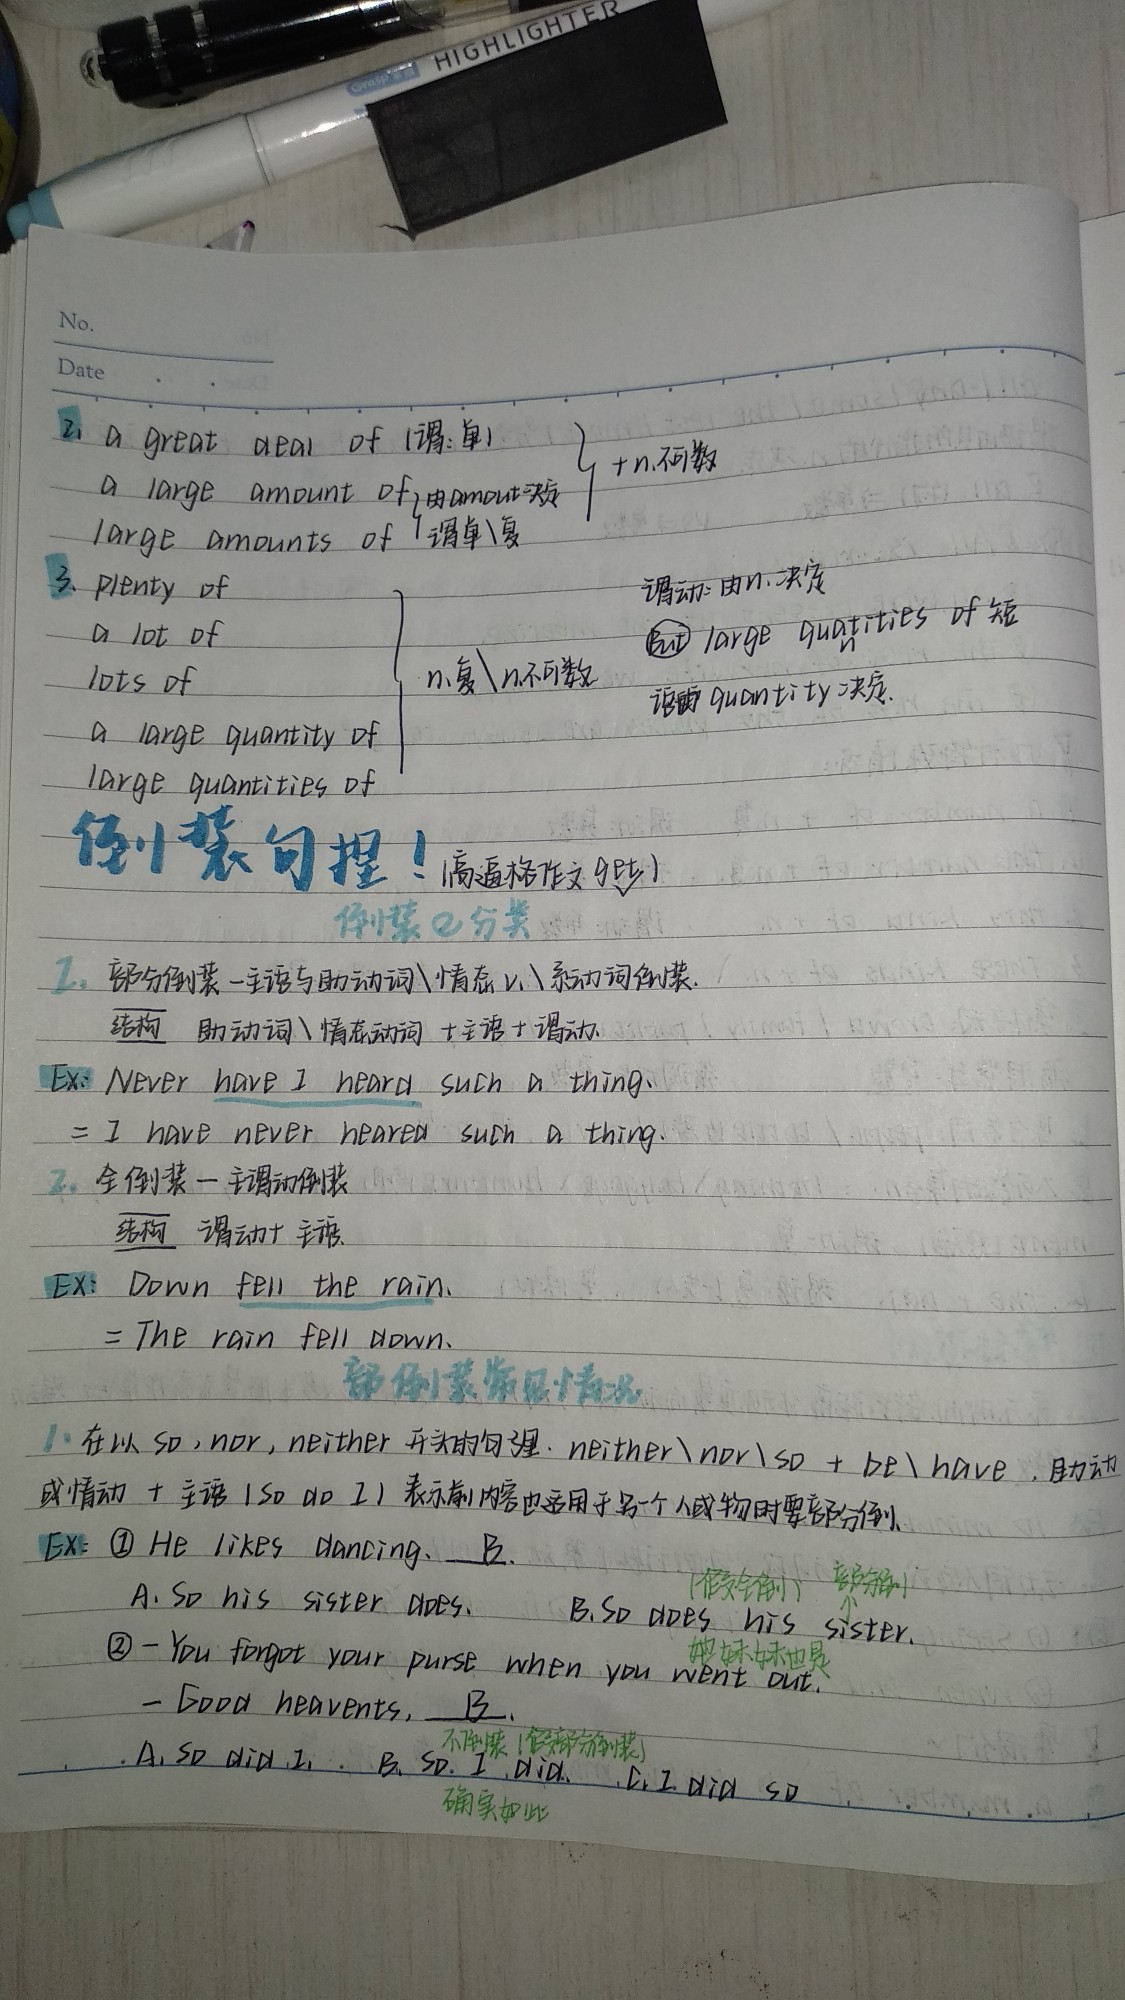 HIGHLIGHTER
No.
Date
2. a great deal of (谓:单)
a large amount of 由amout决定
large amounts of 谓单\复
+n.不可数
3. plenty of
a lot of
lots of
a large quantity of
large quantities of
n.复\n.不可数
谓动:由n.决定
But large quantities of 短
语由quantity决定.
倒装句捏!(高逼格作文get)
倒装の分类
1. 部分倒装—主语与助动词\情态v.\系动词倒装.
结构 助动词\情态动词+主语+谓动.
Ex: Never have I heard such a thing.
= I have never heared such a thing.
2. 全倒装—主谓动倒装
结构 谓动+主语.
Ex: Down fell the rain.
= The rain fell down.
部倒装常见情况
1. 在以so,nor,neither开头的句子里.neither\nor\so + be\have,助动
或情动+主语(so do I)表示前内容也适用于另一个人或物时要部分倒.
Ex: ① He likes dancing. B.
(假全倒) 部分倒
A. So his sister does. B. So does his sister.
她妹妹也是
② - You forgot your purse when you went out.
- Good heavents, B.
不倒装(假部分倒装)
A. So did I. B. So I did. C. I did so
确实如此